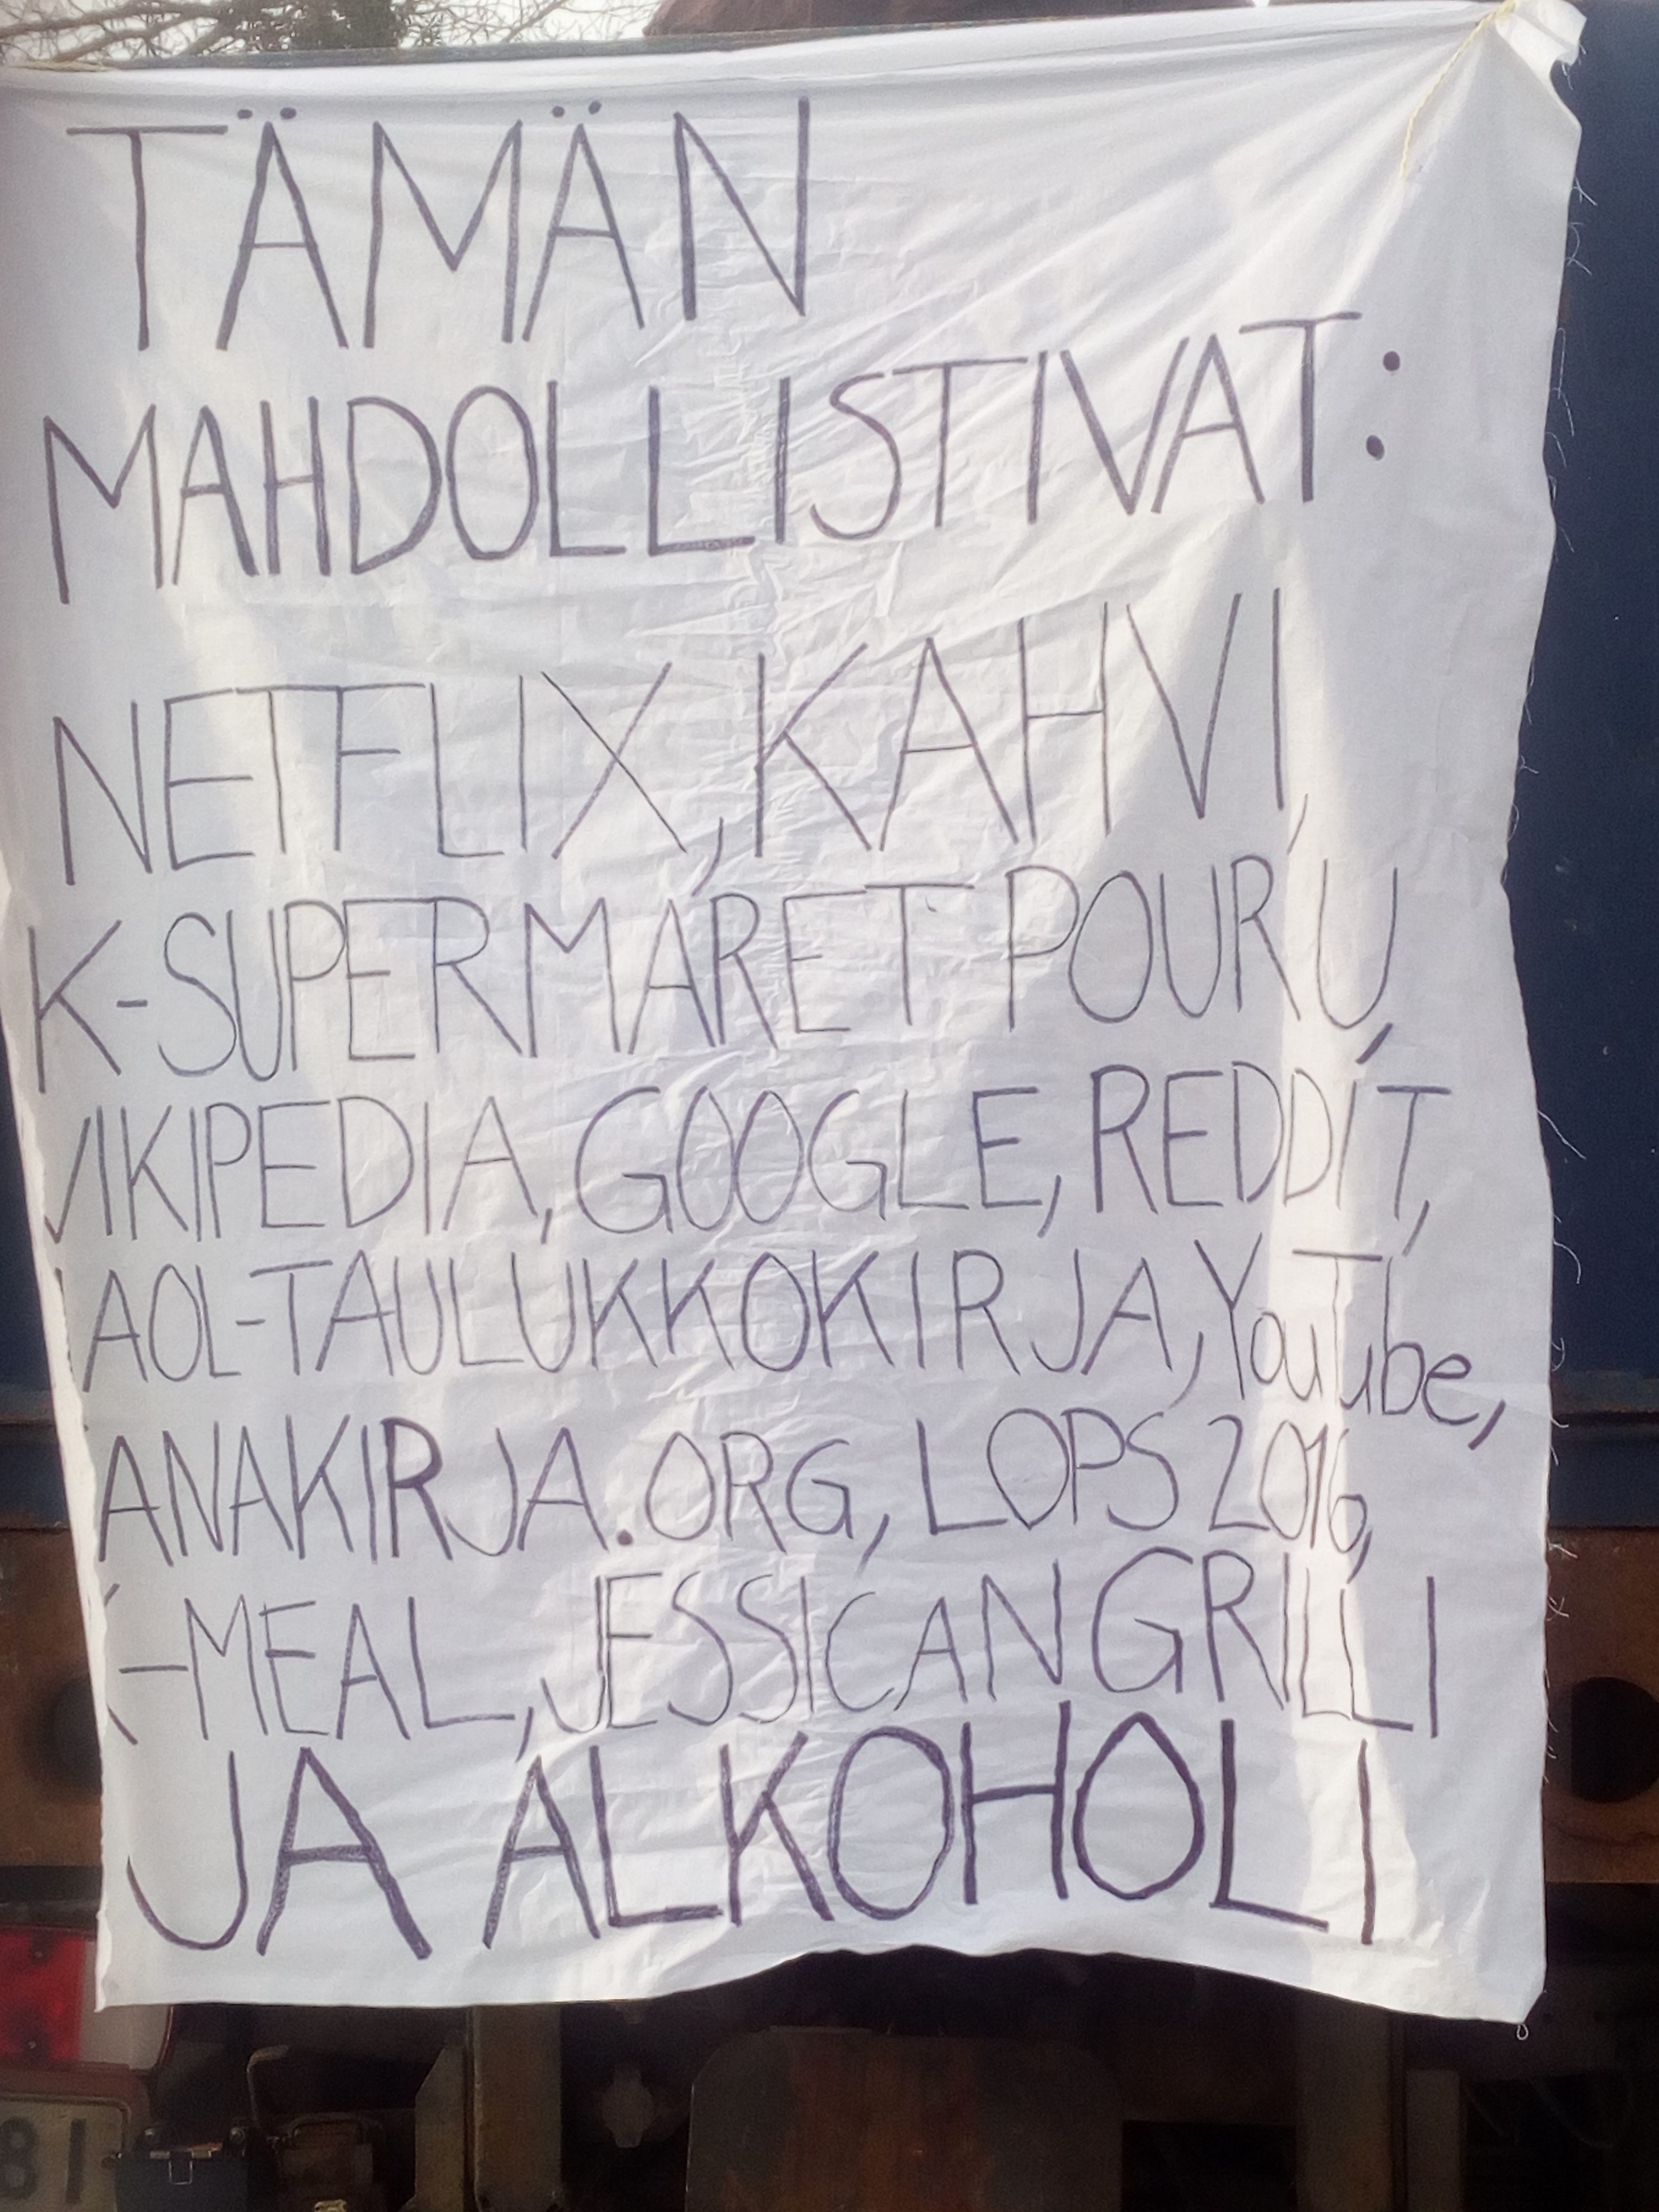 TÄMÄN
MAHDOLLISTIVAT:
NETFLIX, KAHVI,
K-SUPERMARET POURU,
VIKIPEDIA, GOOGLE, REDDIT,
MAOL-TAULUKKOKIRJA, YouTube,
SANAKIRJA.ORG, LOPS 2016,
X-MEAL, JESSICAN GRILLI
JA ALKOHOLI
81